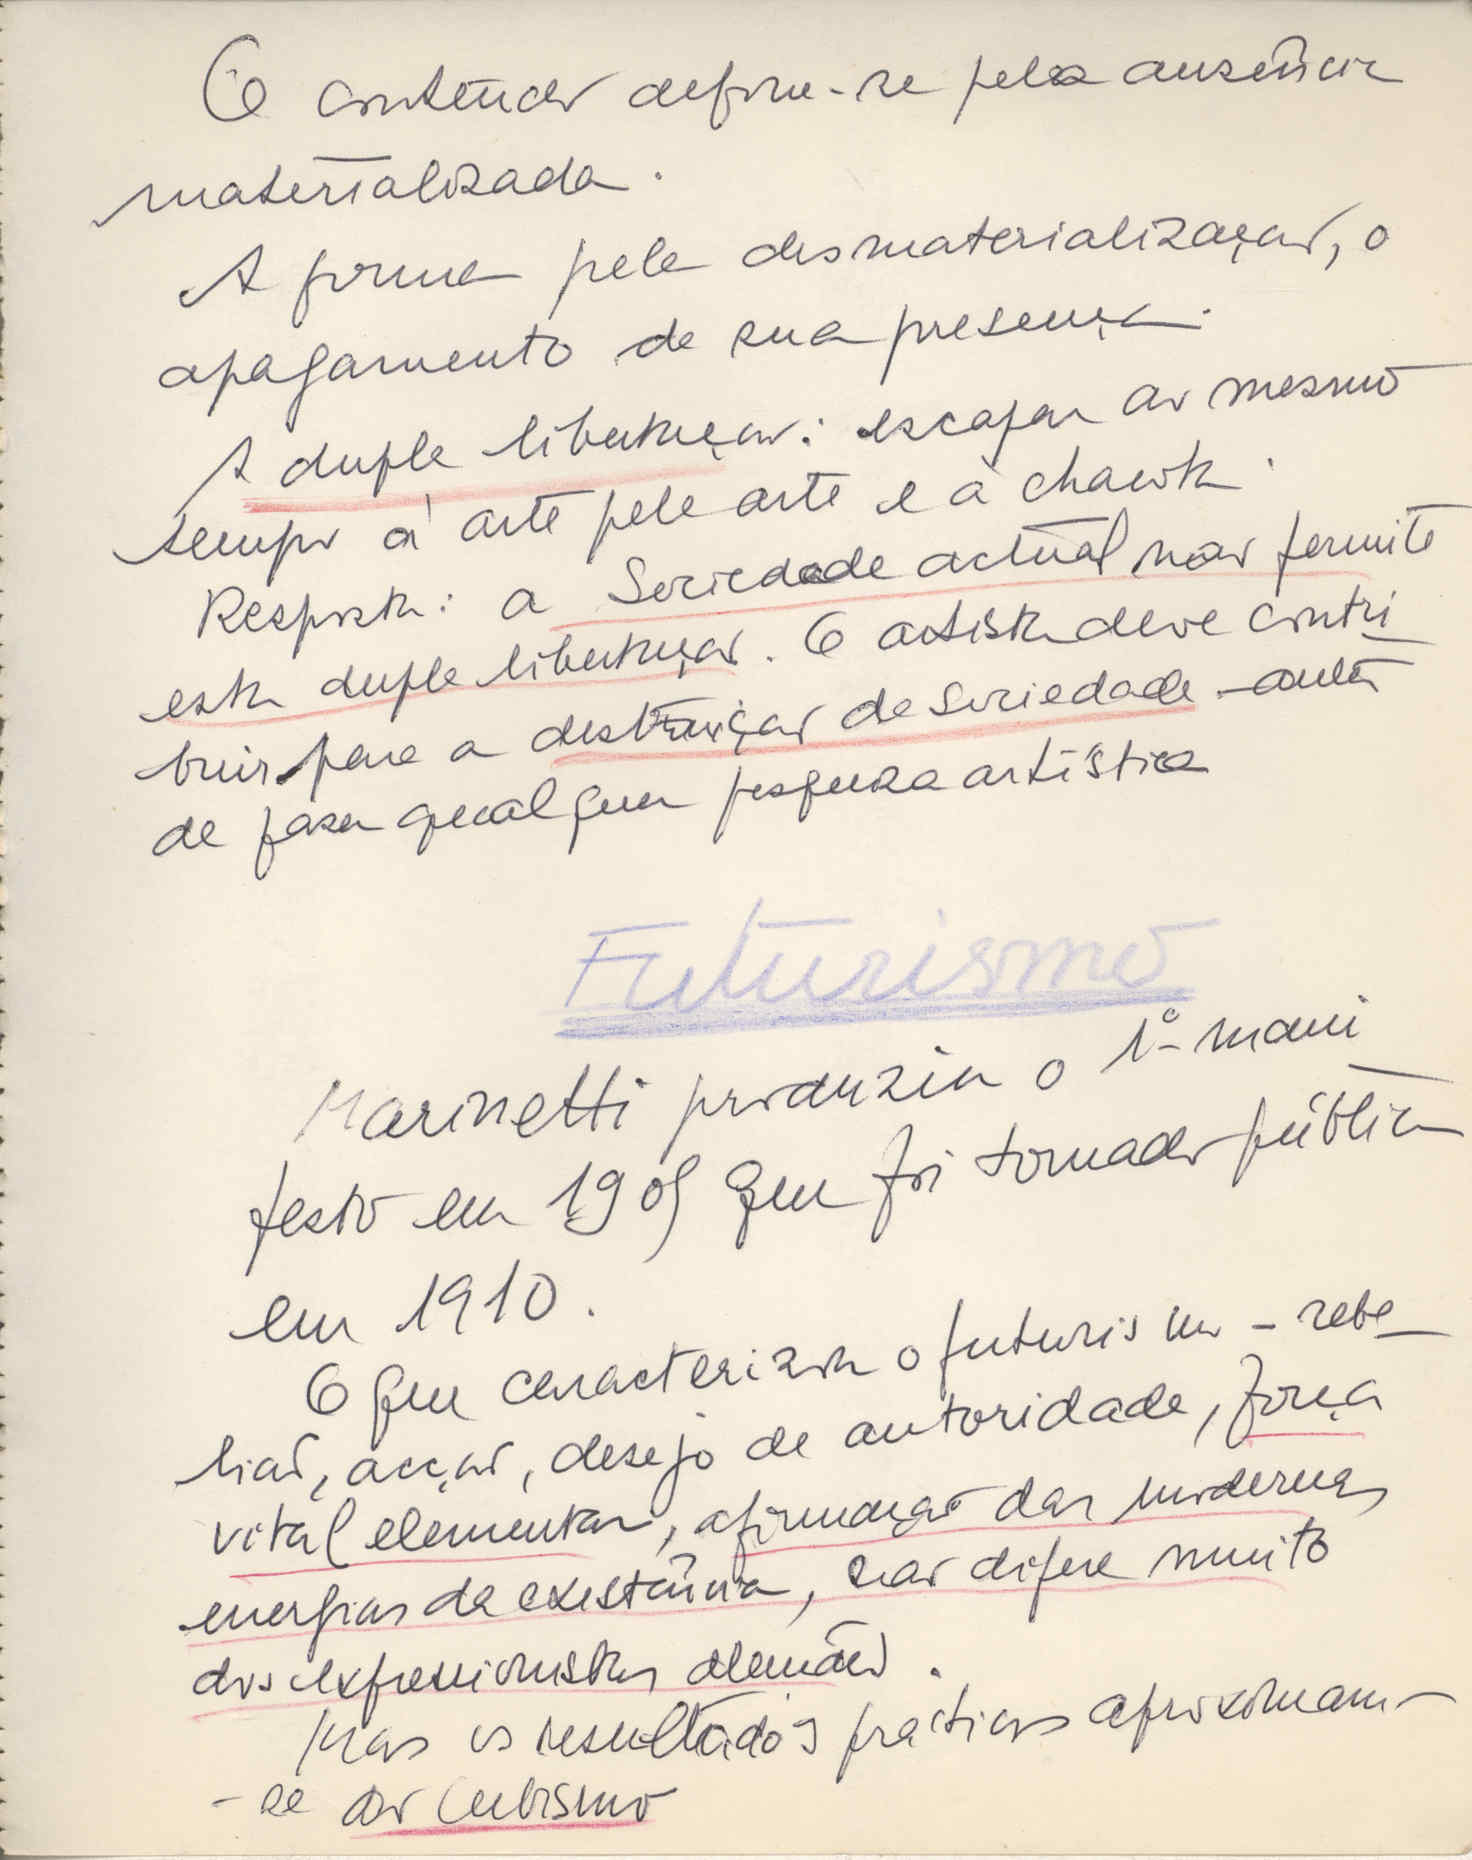 O conteúdo define-se pela ausência
materializada.
A forma pela desmaterialização, o
apagamento de sua presença.
A dupla libertação: escapar ao mesmo
tempo à arte pela arte e à
Resposta: a Sociedade actual não permite
esta dupla libertação. O artista deve contri
buir para a destruição da Sociedade - antes
de fazer qualquer pesquiza artística
Futurismo
Marinetti produziu o 1º mani
festo em 1909 que foi tornado público
em 1910.
O que caracteriza o futurismo - rebe
lião, acção, desejo de autoridade, força
vital elementar, afirmação das modernas
energias da existência, não difere muito
dos expressionistas alemães.
Mas os resultados práticos aproximam-
-se do Cubismo